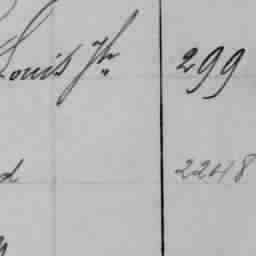 Louis Jh 299
d 2248